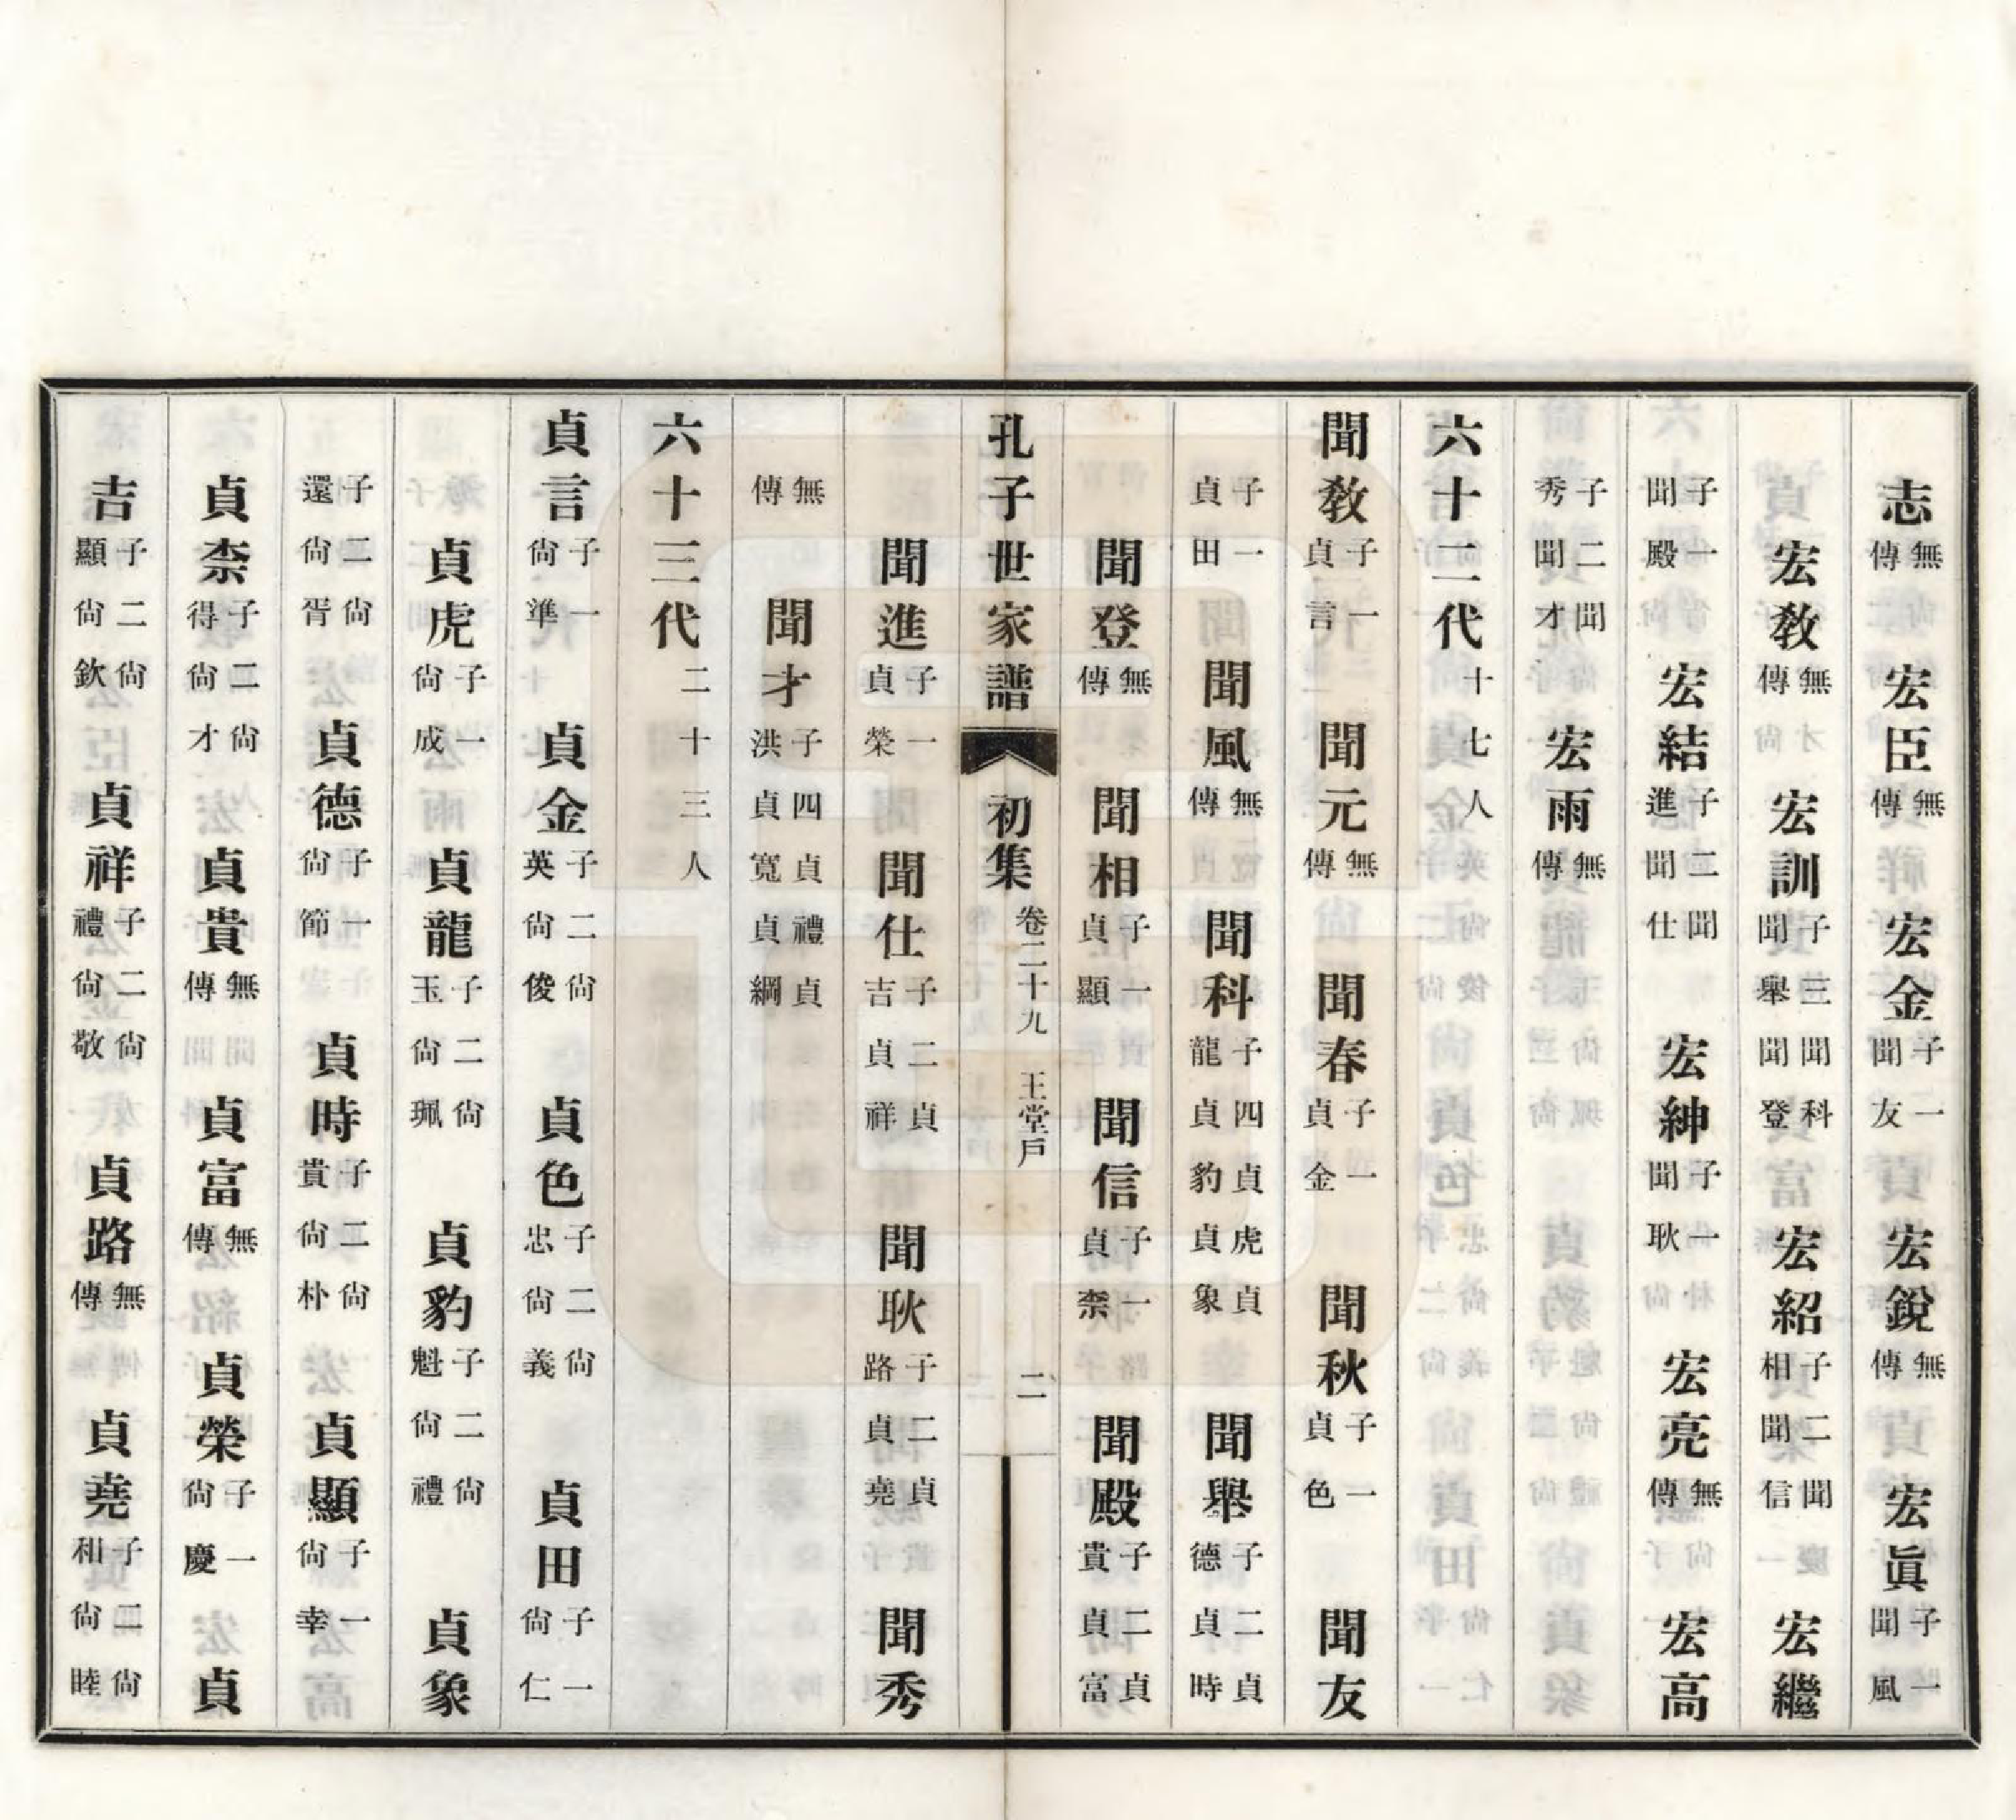 志無傳　宏臣無傳　宏金子一聞友　宏銳無傳　宏眞子一聞風
宏教無傳　宏訓子三聞科聞舉聞登　宏紹子二聞相聞信　宏繼
子一聞殿　宏結子二聞進聞仕　宏紳子一聞耿　宏亮無傳　宏高
子二聞秀聞才　宏雨無傳
六十二代十七人
聞教子一貞言　聞元無傳　聞春子一貞金　聞秋子一貞色　聞友
子一貞田　聞風無傳　聞科子四貞虎貞龍貞豹貞象　聞舉子二貞德貞時
聞登無傳　聞相子一貞顯　聞信子一貞柰　聞殿子二貞貴貞富
孔子世家譜　初集　卷二十九　王堂戶　二
聞進子一貞榮　聞仕子二貞吉貞祥　聞耿子二貞路貞堯　聞秀
無傳　聞才子四貞禮貞洪貞寬貞綱
六十三代二十三人
貞言子一尙準　貞金子二尙英尙俊　貞色子二尙忠尙義　貞田子一尙仁
貞虎子一尙成　貞龍子二尙玉尙珮　貞豹子二尙魁尙禮　貞象
子二尙還尙胥　貞德子一尙節　貞時子二尙貴尙朴　貞顯子一尙幸
貞柰子二尙得尙才　貞貴無傳　貞富無傳　貞榮子一尙慶　貞
吉子二尙顯尙欽　貞祥子二尙禮尙敬　貞路無傳　貞堯子二尙和尙睦